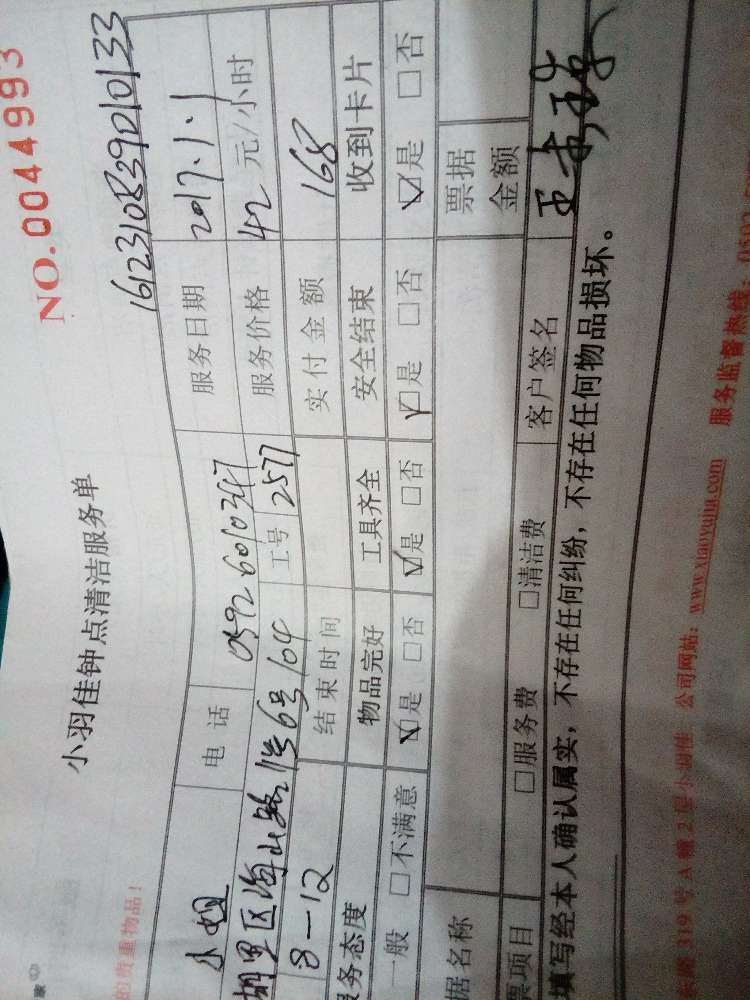 NO.0044993
小羽佳钟点清洁服务单
的贵重物品！
1612310839010133
小姐 电话 0592 6010347 服务日期 2017.1.1
湖里区海山路 6号104 工号 2577 服务价格 42 元/小时
8-12 结束时间 实付金额 168
务态度 物品完好 工具齐全 安全结束 收到卡片
一般 □不满意 ☑是 □否 ☑是 □否 ☑是 □否 ☑是 □否
据名称 票据金额
票项目 □服务费 □清洁费 客户签名
填写经本人确认属实，不存在任何纠纷，不存在任何物品损坏。
东路319号A幢2层小羽佳 公司网站：www.xiaoyujia.com 服务监督热线：